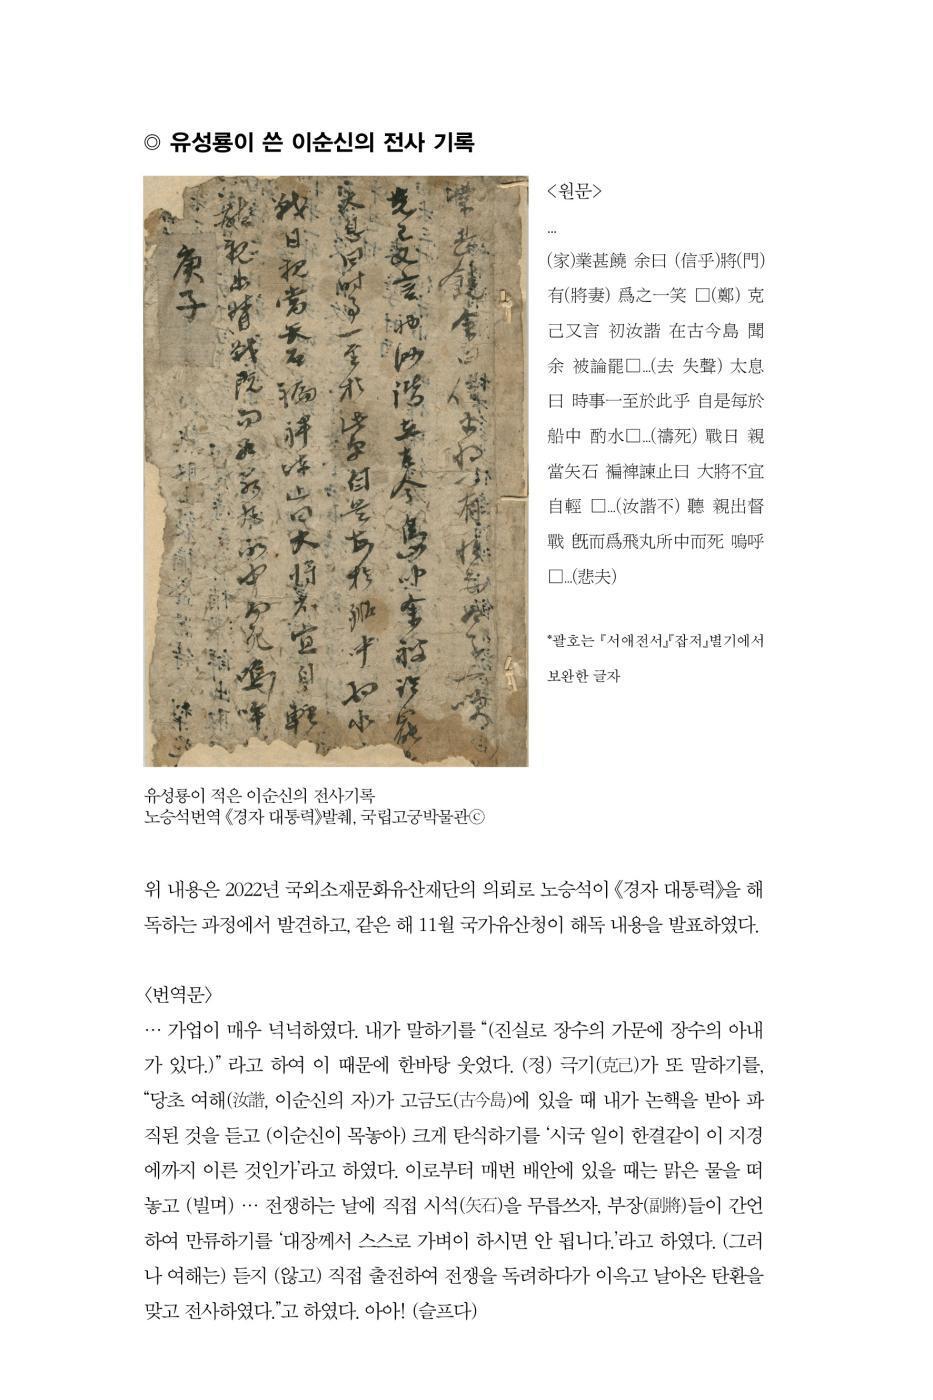 ◎ 유성룡이 쓴 이순신의 전사 기록
庚子
<원문>
...
(家)業甚饒 余曰 (信乎)將(門)
有(將妻) 爲之一笑 □(鄭) 克
己又言 初汝諧 在古今島 聞
余 被論罷□...(去 失聲) 太息
曰 時事一至於此乎 自是每於
船中 酌水□...(禱死) 戰日 親
當矢石 褊裨諫止曰 大將不宜
自輕 □...(汝諧不) 聽 親出督
戰 旣而爲飛丸所中而死 嗚呼
□...(悲夫)
*괄호는 『서애전서』『잡저』별기에서
보완한 글자
유성룡이 적은 이순신의 전사기록
노승석번역 《경자 대통력》발췌, 국립고궁박물관ⓒ
위 내용은 2022년 국외소재문화유산재단의 의뢰로 노승석이 《경자 대통력》을 해
독하는 과정에서 발견하고, 같은 해 11월 국가유산청이 해독 내용을 발표하였다.
〈번역문〉
… 가업이 매우 넉넉하였다. 내가 말하기를 “(진실로 장수의 가문에 장수의 아내
가 있다.)” 라고 하여 이 때문에 한바탕 웃었다. (정) 극기(克己)가 또 말하기를,
“당초 여해(汝諧, 이순신의 자)가 고금도(古今島)에 있을 때 내가 논핵을 받아 파
직된 것을 듣고 (이순신이 목놓아) 크게 탄식하기를 ‘시국 일이 한결같이 이 지경
에까지 이른 것인가’라고 하였다. 이로부터 매번 배안에 있을 때는 맑은 물을 떠
놓고 (빌며) … 전쟁하는 날에 직접 시석(矢石)을 무릅쓰자, 부장(副將)들이 간언
하여 만류하기를 ‘대장께서 스스로 가벼이 하시면 안 됩니다.’라고 하였다. (그러
나 여해는) 듣지 (않고) 직접 출전하여 전쟁을 독려하다가 이윽고 날아온 탄환을
맞고 전사하였다.”고 하였다. 아아! (슬프다)